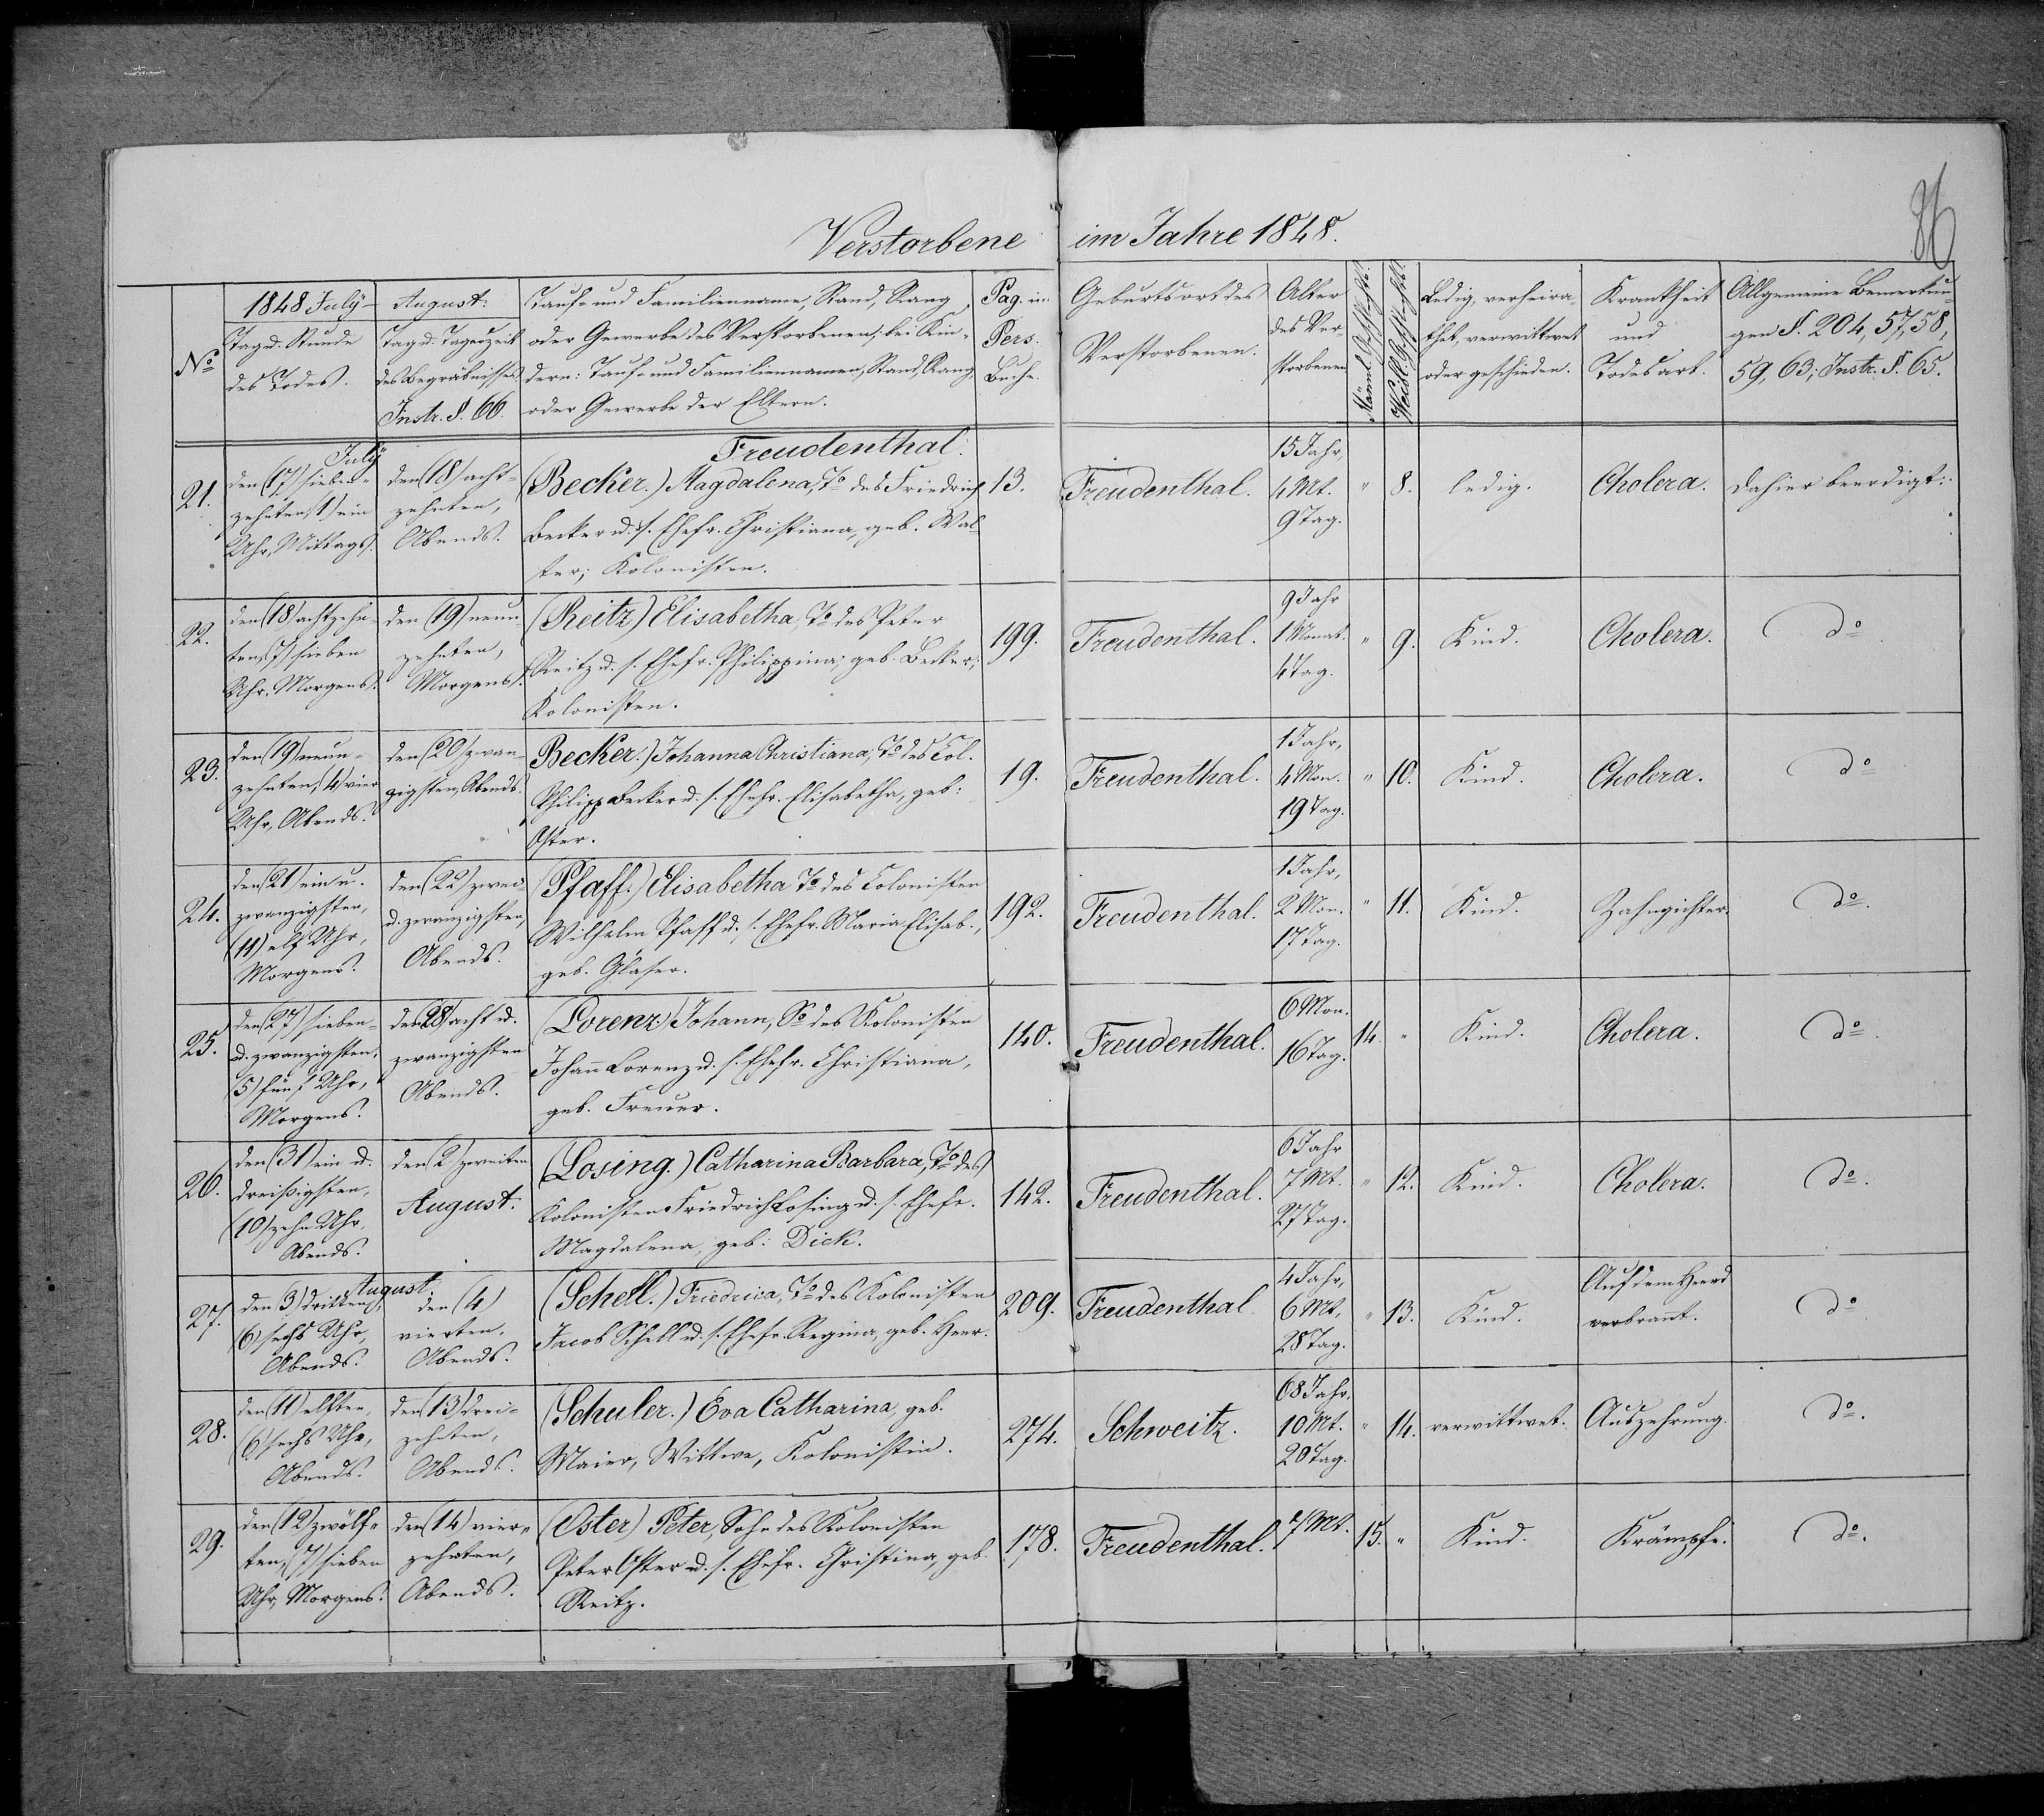 86
Verstorbene im Jahre 1848.
No
1848 July
Tag u. Stunde
des Todes.
August:
Tag u. Tageszeit
des Begräbnisses
Instr. §. 66.
Tauf- und Familienname, Stand, Rang
oder Gewerbe des Verstorbenen; bei Kin-
dern: Tauf- und Familiennamen, Stand, Rang
oder Gewerbe der Eltern.
Pag. im
Pers.
Buche.
Geburtsort des
Verstorbenen.
Alter
des Ver-
storbenen
Mänl. Geschlechts.
Weibl. Geschlechts.
Ledig, verheira-
thet, verwittwet
oder geschieden.
Krankheit
und
Todesart.
Allgemeine Bemerkun-
gen §. 204, 57, 58,
59, 63; Instr. §. 65.
Freudenthal.
21.
July
den (17) sieben-
zehnten, (1) ein
Uhr, Mittags.
den (18) acht-
zehnten,
Abends.
(Becker.) Magdalena, To des Friedrich
Becker u. s. Ehefr. Christiana, geb. Wal-
ter; Kolonisten.
13.
Freudenthal.
15 Jahr,
4 Mt.
9 Tag.
"
8.
ledig.
Cholera.
Dahier beerdigt.
22.
den (18) achtzehn-
ten, (7) sieben
Uhr, Morgens.
den (19) neun-
zehnten,
Morgens.
(Reitz) Elisabetha, To des Peter
Reitz u. s. Ehefr. Philippina, geb. Becker;
Kolonisten.
199.
Freudenthal.
9 Jahr
1 Monat.
4 Tag.
"
9.
Kind.
Cholera.
do
23.
den (19) neun-
zehnten, (4) vier
Uhr, Abends.
den (20) zwan-
zigsten, Abends.
Becker.) Johanna Christiana, To des Col.
Philipp Becker u. s. Ehefr. Elisabetha, geb:
Oster.
19.
Freudenthal.
1 Jahr,
4 Mon.
19 Tag.
"
10.
Kind.
Cholera.
do
24.
den (21) ein u.
zwanzigsten,
(11) elf Uhr,
Morgens.
den (22) zwei-
u. zwanzigsten,
Abends.
(Pfaff.) Elisabetha To des Colonisten
Wilhelm Pfaff u. s. Ehefr. Maria Elisab.,
geb. Gläser.
192.
Freudenthal.
1 Jahr,
2 Mon.
17 Tag.
"
11.
Kind.
Zahngichter.
do.
25.
den (27) sieben-
u. zwanzigsten,
(5) fünf Uhr,
Morgens.
den (28) acht u.
zwanzigsten
Abends.
(Lorenz) Johann, So des Kolonisten
Johann Lorenz u. s. Ehefr. Christiana,
geb. Freuer.
140.
Freudenthal.
6 Mon.
16 Tag.
14.
"
Kind.
Cholera.
do
26.
den (31) ein u.
dreißigsten,
(10) zehn Uhr,
Abends.
den (2) zweiten
August.
(Losing.) Catharina Barbara, To des
Kolonisten Friedrich Losing u. s. Ehefr.
Magdalena, geb: Dick.
142.
Freudenthal.
6 Jahr
7 Mt.
27 Tag.
"
12.
Kind.
Cholera.
do.
27.
August.
den (3) dritten,
(6) sechs Uhr,
Abends.
den (4)
vierten,
Abends.
(Schell.) Friedrica, To des Kolonisten
Jacob Schell u. s. Ehefr. Regina, geb. Heer.
209.
Freudenthal
4 Jahr,
6 Mt.
28 Tag.
"
13.
Kind.
Auf dem Heerd
verbrannt.
do
28.
den (11) elften,
(6) sechs Uhr,
Abends.
den (13) drei-
zehnten,
Abends.
(Schuler.) Eva Catharina, geb.
Maier, Wittwe, Kolonistin.
274.
Schweitz.
68 Jahr,
10 Mt.
20 Tag.
"
14.
verwittwet.
Auszehrung.
do.
29.
den (12) zwölf-
ten, (7) sieben
Uhr, Morgens.
den (14) vier-
zehnten,
Abends.
(Oster) Peter, Sohn des Kolonisten
Peter Oster u. s. Ehefr. Christina, geb.
Reitz.
178.
Freudenthal.
7 Mt.
15.
"
Kind.
Krämpfe.
do.